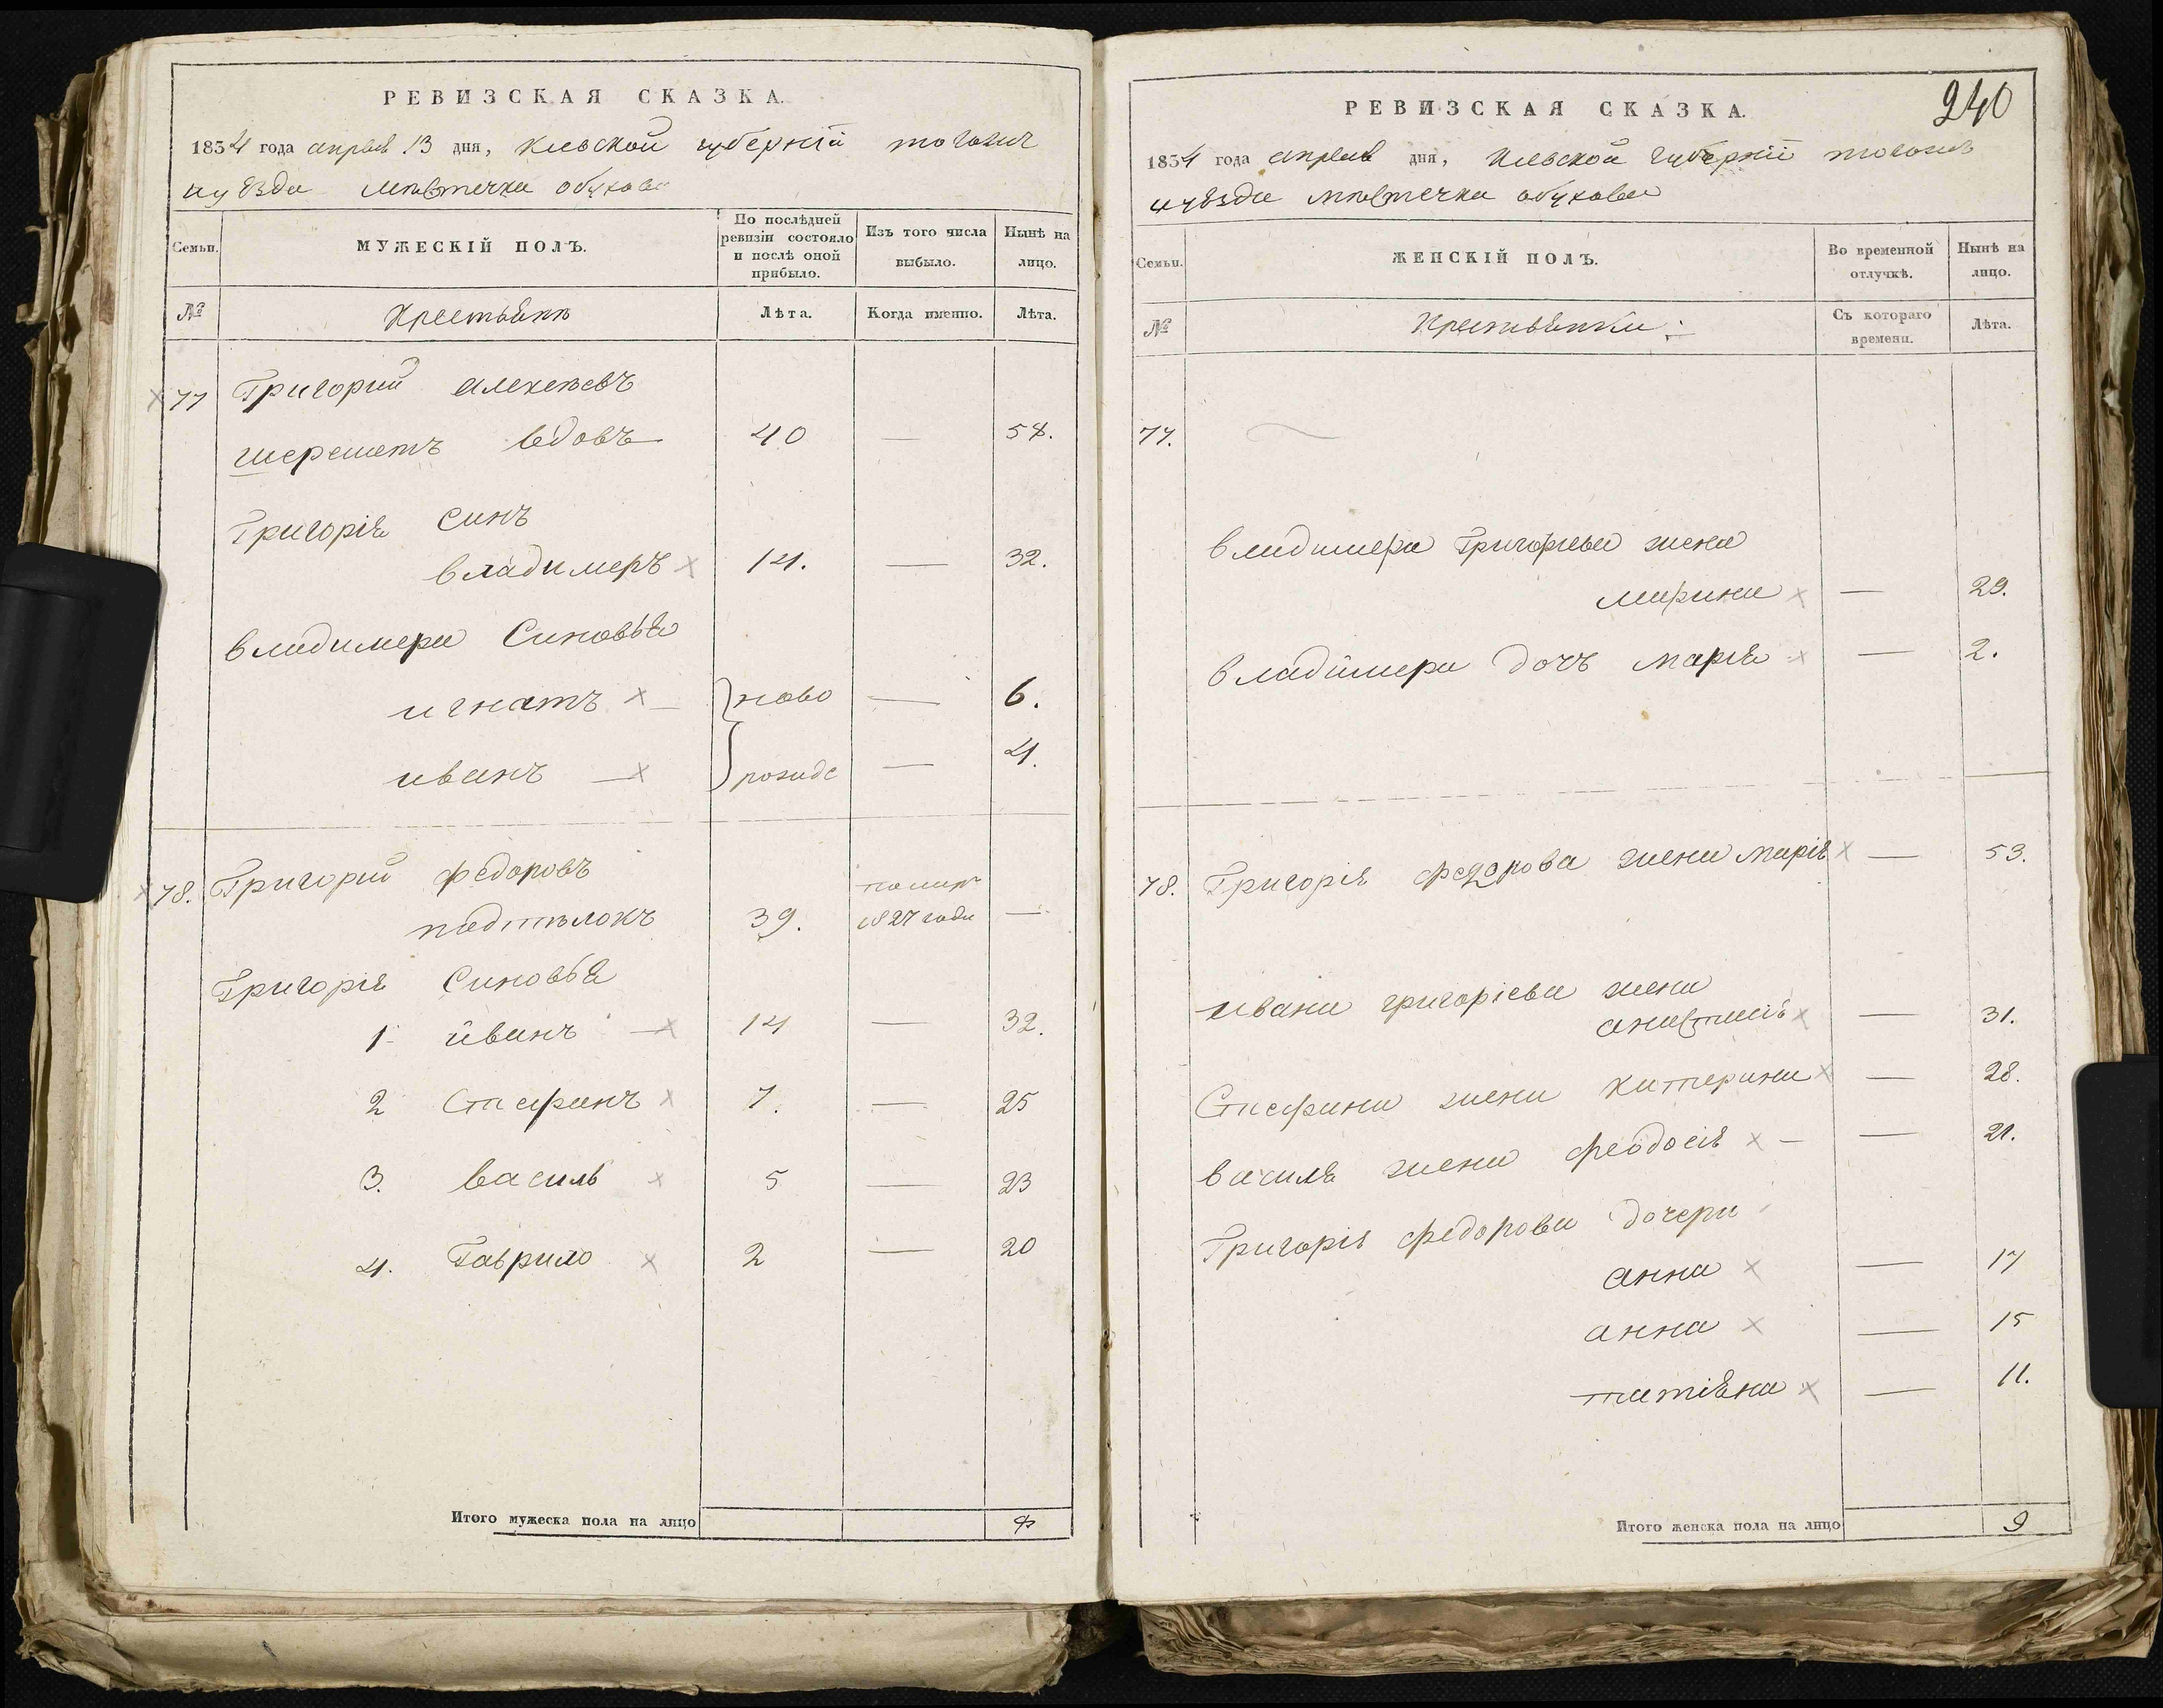 РЕВИЗСКАЯ СКАЗКА.
1834 года апреля 13 дня, Киевской губернии тогожъ
и уезда местечка обухова
Семьи.
МУЖЕСКІЙ ПОЛЪ.
По послѣдней ревизіи состояло и послѣ оной прибыло.
Изъ того числа выбыло.
Нынѣ на лицо.
№
Крестьянѣ
Лѣта.
Когда именно.
Лѣта.
77 Григорий алексѣевъ
шереметъ вдовъ 40 — 58.
Григорія синъ
владимеръ 14. — 32.
владимера Синовья
игнатъ ново — 6.
иванъ рожде — 4.
78. Григорий федоровъ помир
подтѣлокъ 39. 1827 года —
Григорія Синовья
1 иванъ 14 — 32.
2 Стефанъ 7. — 25
3. василь 5 — 23
4. Гаврило 2 — 20
Итого мужеска пола на лицо 8
РЕВИЗСКАЯ СКАЗКА. 240
1834 года апреля дня, Киевской губерніи тогожъ
и уезда местечка обухова
Семьи.
ЖЕНСКІЙ ПОЛЪ.
Во временной отлучкѣ.
Нынѣ на лицо.
№
Крестьянки:
Съ котораго времени.
Лѣта.
77. —
владимера Григорьева жена
марина — 29.
владимера дочъ марія — 2.
78. Григорія федорова жена марія — 53.
ивана григоріева жена
анастасія — 31.
Стефана жена катерина — 28.
василя жена феодосія — 21.
Григорія федорова дочери
анна — 17
анна — 15
татіяна — 11.
Итого женска пола на лицо 9